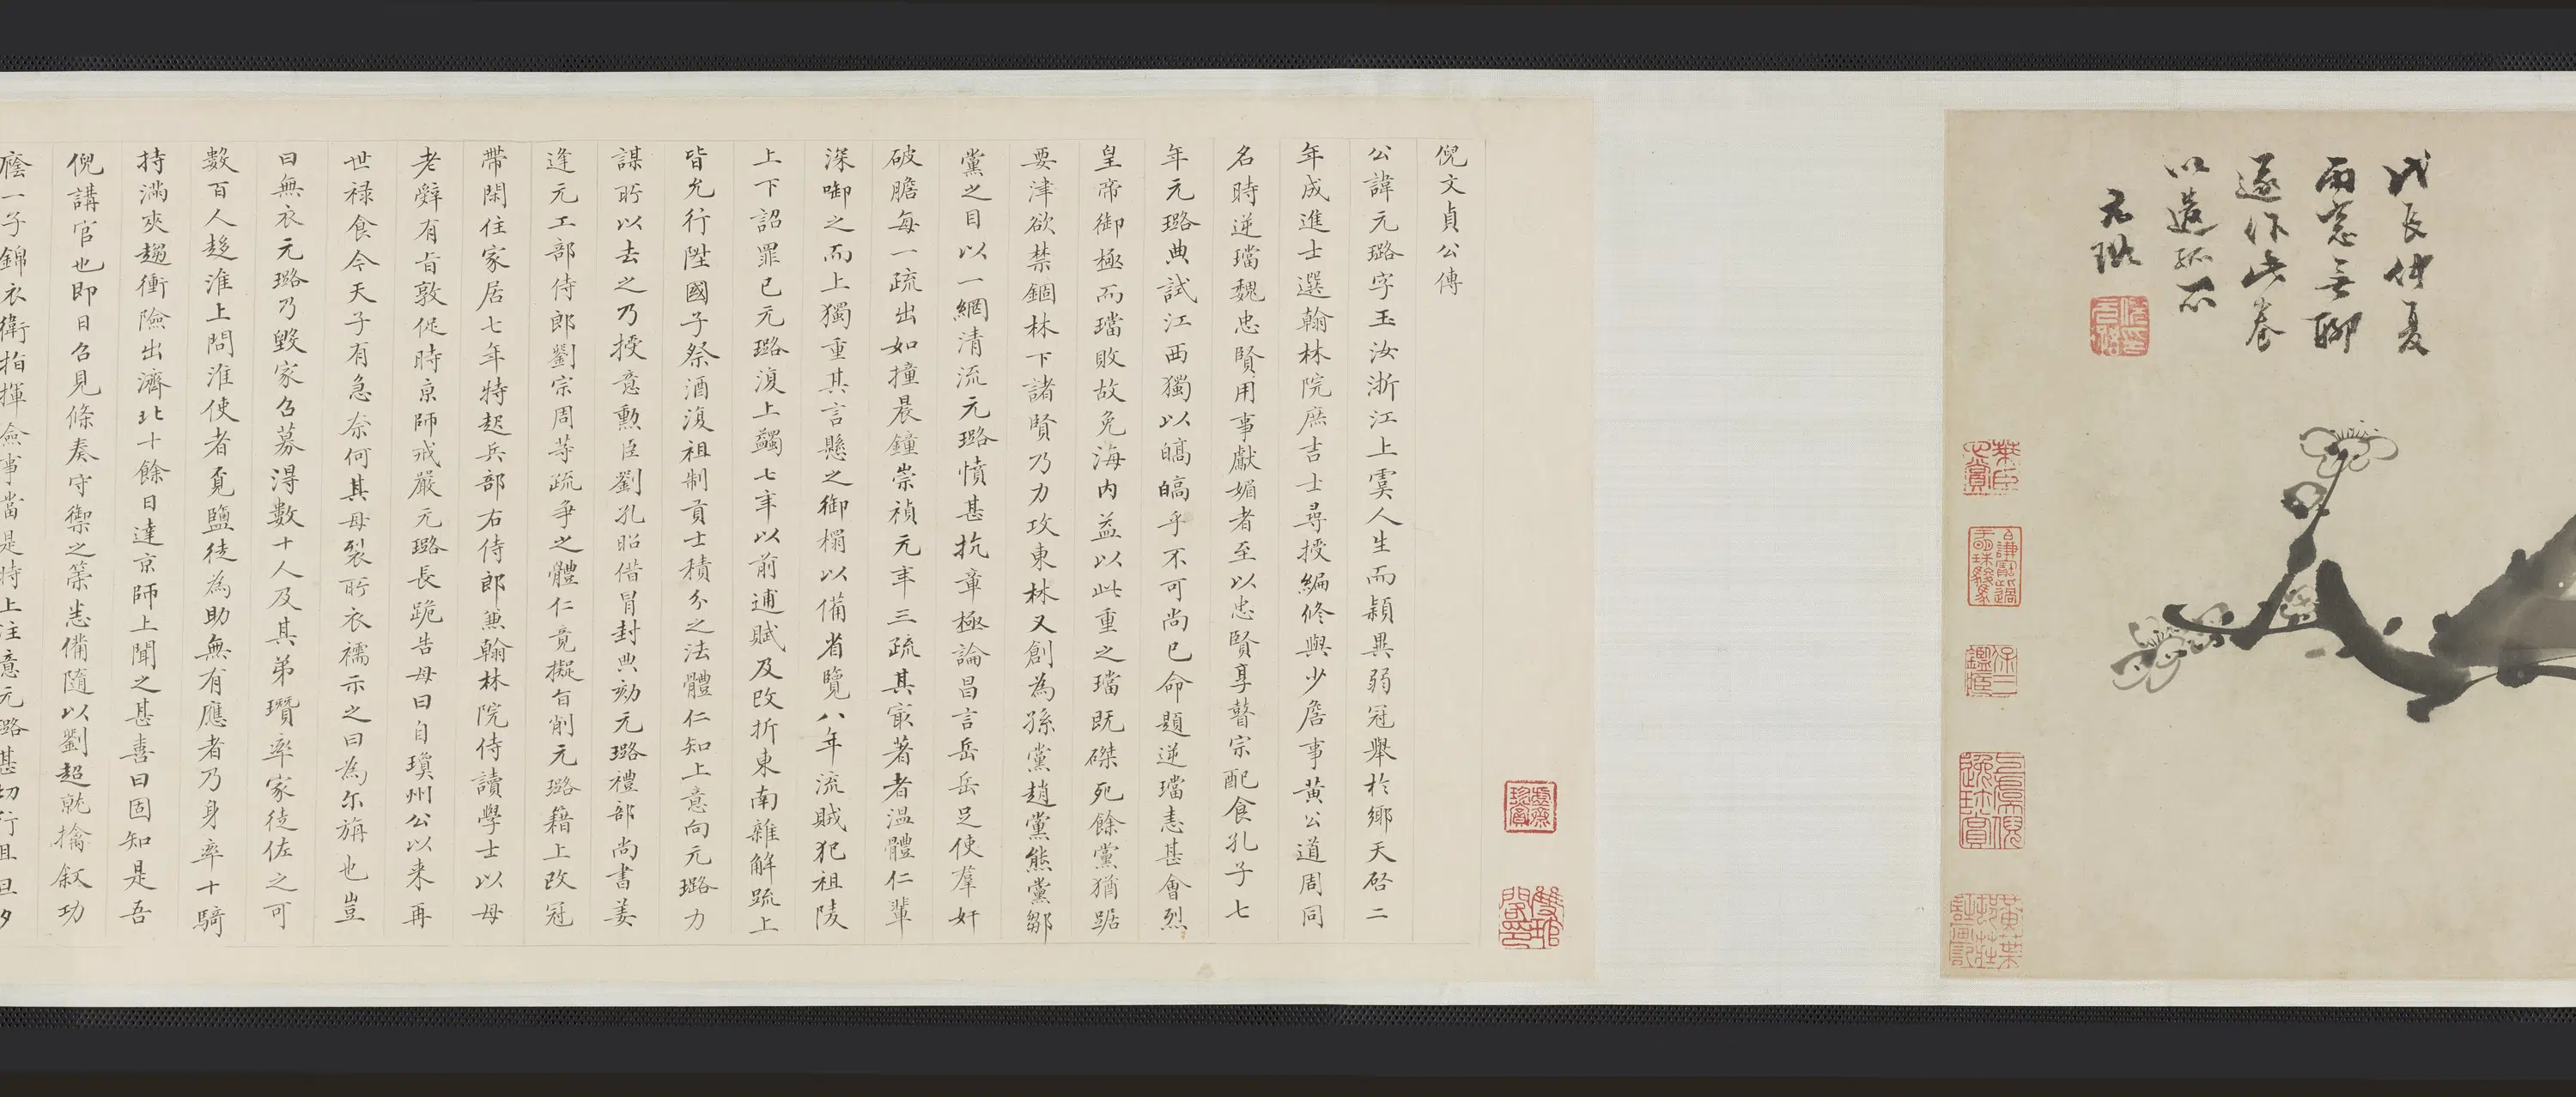 戊辰仲夏
雨窓無聊
遂作此卷
以遺孤石
元璐
倪文貞公傳
公諱元璐字玉汝浙江上虞人生而穎異弱冠舉於鄉天啓二
年成進士選翰林院庶吉士尋授編修與少詹事黃公道周同
名時逆璫魏忠賢用事獻媚者至以忠賢享瞽宗配食孔子七
年元璐典試江西獨以皜皜乎不可尚已命題逆璫恚甚會烈
皇帝御極而璫敗故免海内益以此重之璫既磔死餘黨猶踞
要津欲禁錮林下諸賢乃力攻東林又創為孫黨趙黨熊黨鄒
黨之目以一網清流元璐憤甚抗章極論昌言岳岳足使羣奸
破膽每一疏出如撞晨鐘崇禎元年三疏其寂著者溫體仁輩
深啣之而上獨重其言懸之御榻以備省覽八年流賊犯祖陵
上下詔罪已元璐復上蠲七年以前逋賦及改折東南雜解疏上
皆允行陞國子祭酒復祖制貢士積分之法體仁知上意向元璐力
謀所以去之乃授意勲臣劉孔昭借冒封典劾元璐禮部尚書姜
逢元工部侍郎劉宗周等疏爭之體仁竟擬旨削元璐籍上改冠
帶閑住家居七年特起兵部右侍郎兼翰林院侍讀學士以母
老辭有旨敦促時京師戒嚴元璐長跪告母曰自瓊州公以来再
世禄食今天子有急奈何其母裂所衣襦示之曰為尓旃也豈
曰無衣元璐乃毀家召募得數十人及其弟瓚率家徒佐之可
數百人趍淮上問淮使者覓鹽徒為助無有應者乃身率十騎
持滿夾趨衝險出濟北十餘日達京師上聞之甚喜曰固知是吾
倪講官也即日召見條奏守禦之策悉備隨以劉超就擒叙功
廕一子錦衣衛指揮僉事當是時上注意元璐甚切行且旦夕